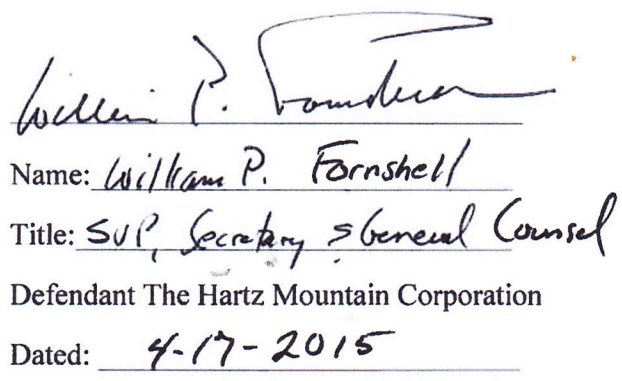 William P. Fornshell
Name: William P. Fornshell
Title: SVP, Secretary & General Counsel
Defendant The Hartz Mountain Corporation
Dated: 4-17-2015